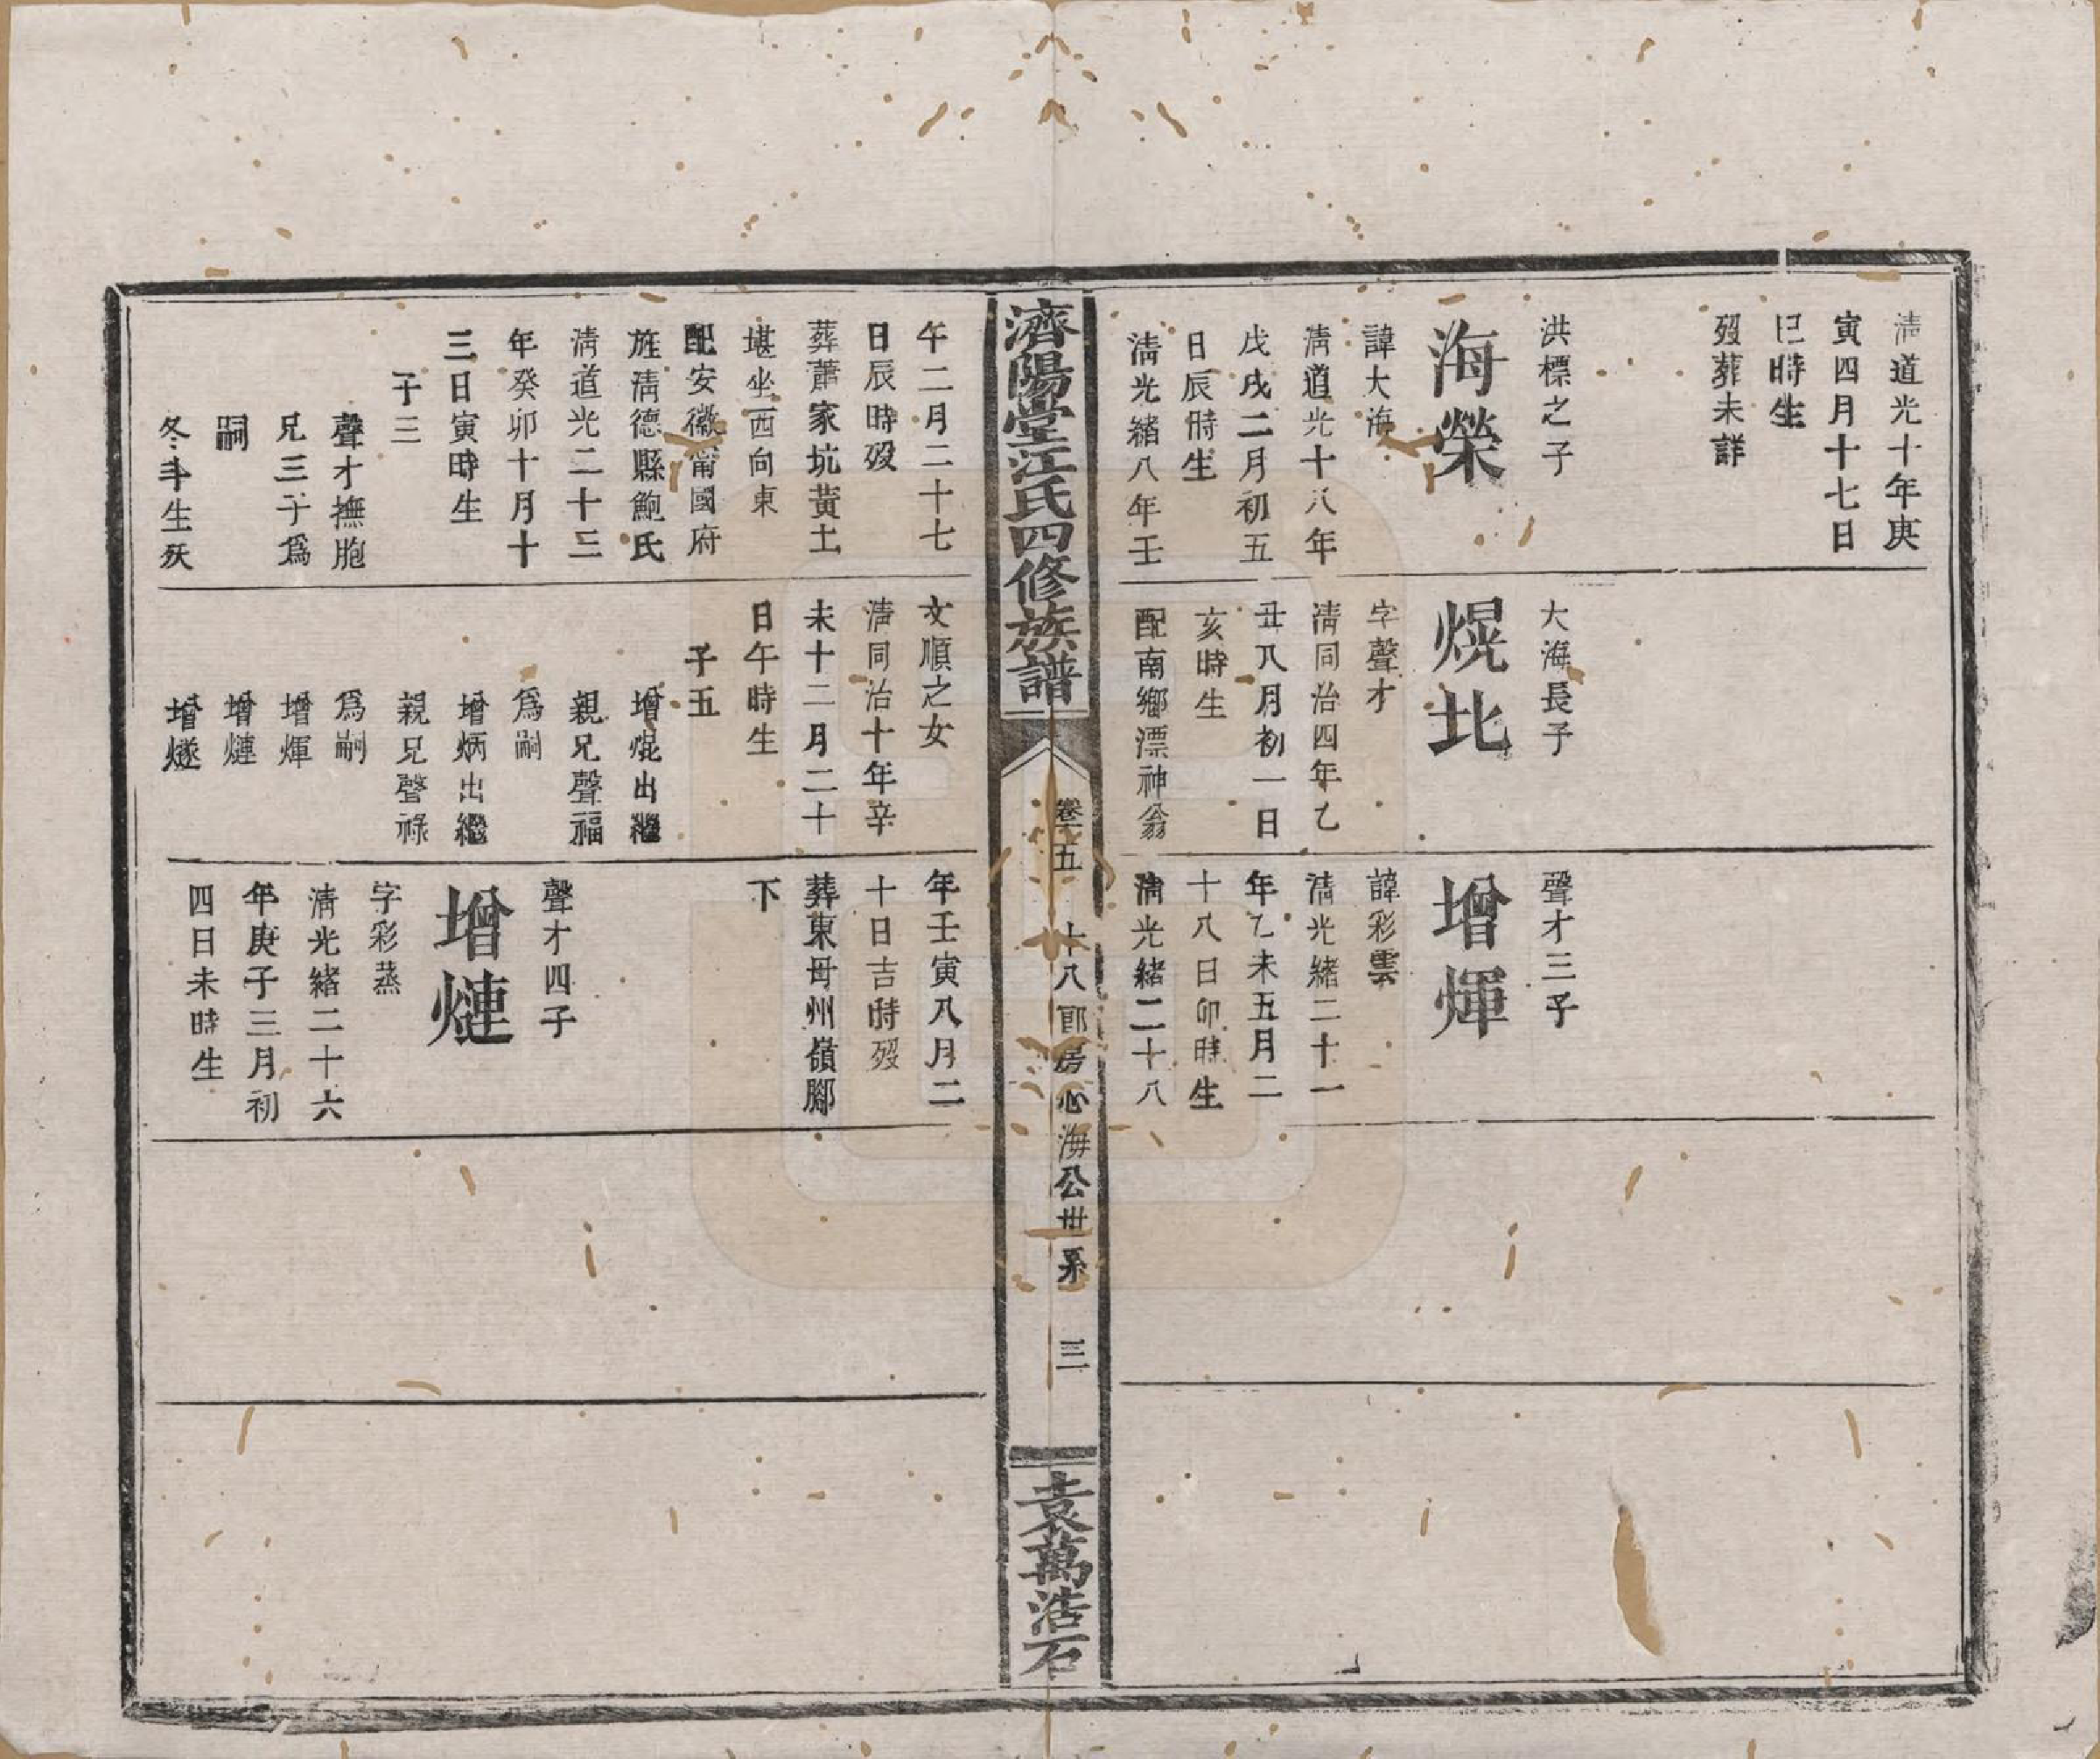 清道光十年庚
寅四月十七日
巳時生
歿葬未詳
洪標之子
海榮
諱大海
清道光十八年
戊戌二月初五
日辰時生
清光緒八年壬
大海長子
熀北
字聲才
清同治四年乙
丑八月初一日
亥時生
配南鄉漂神翁
聲才三子
增煇
諱彩雲
清光緒二十一
年乙未五月二
十八日卯時生
清光緒二十八
濟陽堂江氏四修族譜
卷五
十八郎房心海公世系
三
袁萬浩石
午二月二十七
日辰時歿
葬蕭家坑黃土
堪坐西向東
配安徽甯國府
旌清德縣鮑氏
清道光二十三
年癸卯十月十
三日寅時生
子三
聲才撫胞
兄三子為
嗣
冬斗生殀
文順之女
清同治十年辛
未十二月二十
日午時生
子五
增焜出繼
親兄聲福
為嗣
增炳出繼
親兄聲祿
為嗣
增煇
增熑
增燧
年壬寅八月二
十日吉時歿
葬東毋州嶺腳
下
聲才四子
增熑
字彩蒸
清光緒二十六
年庚子三月初
四日未時生